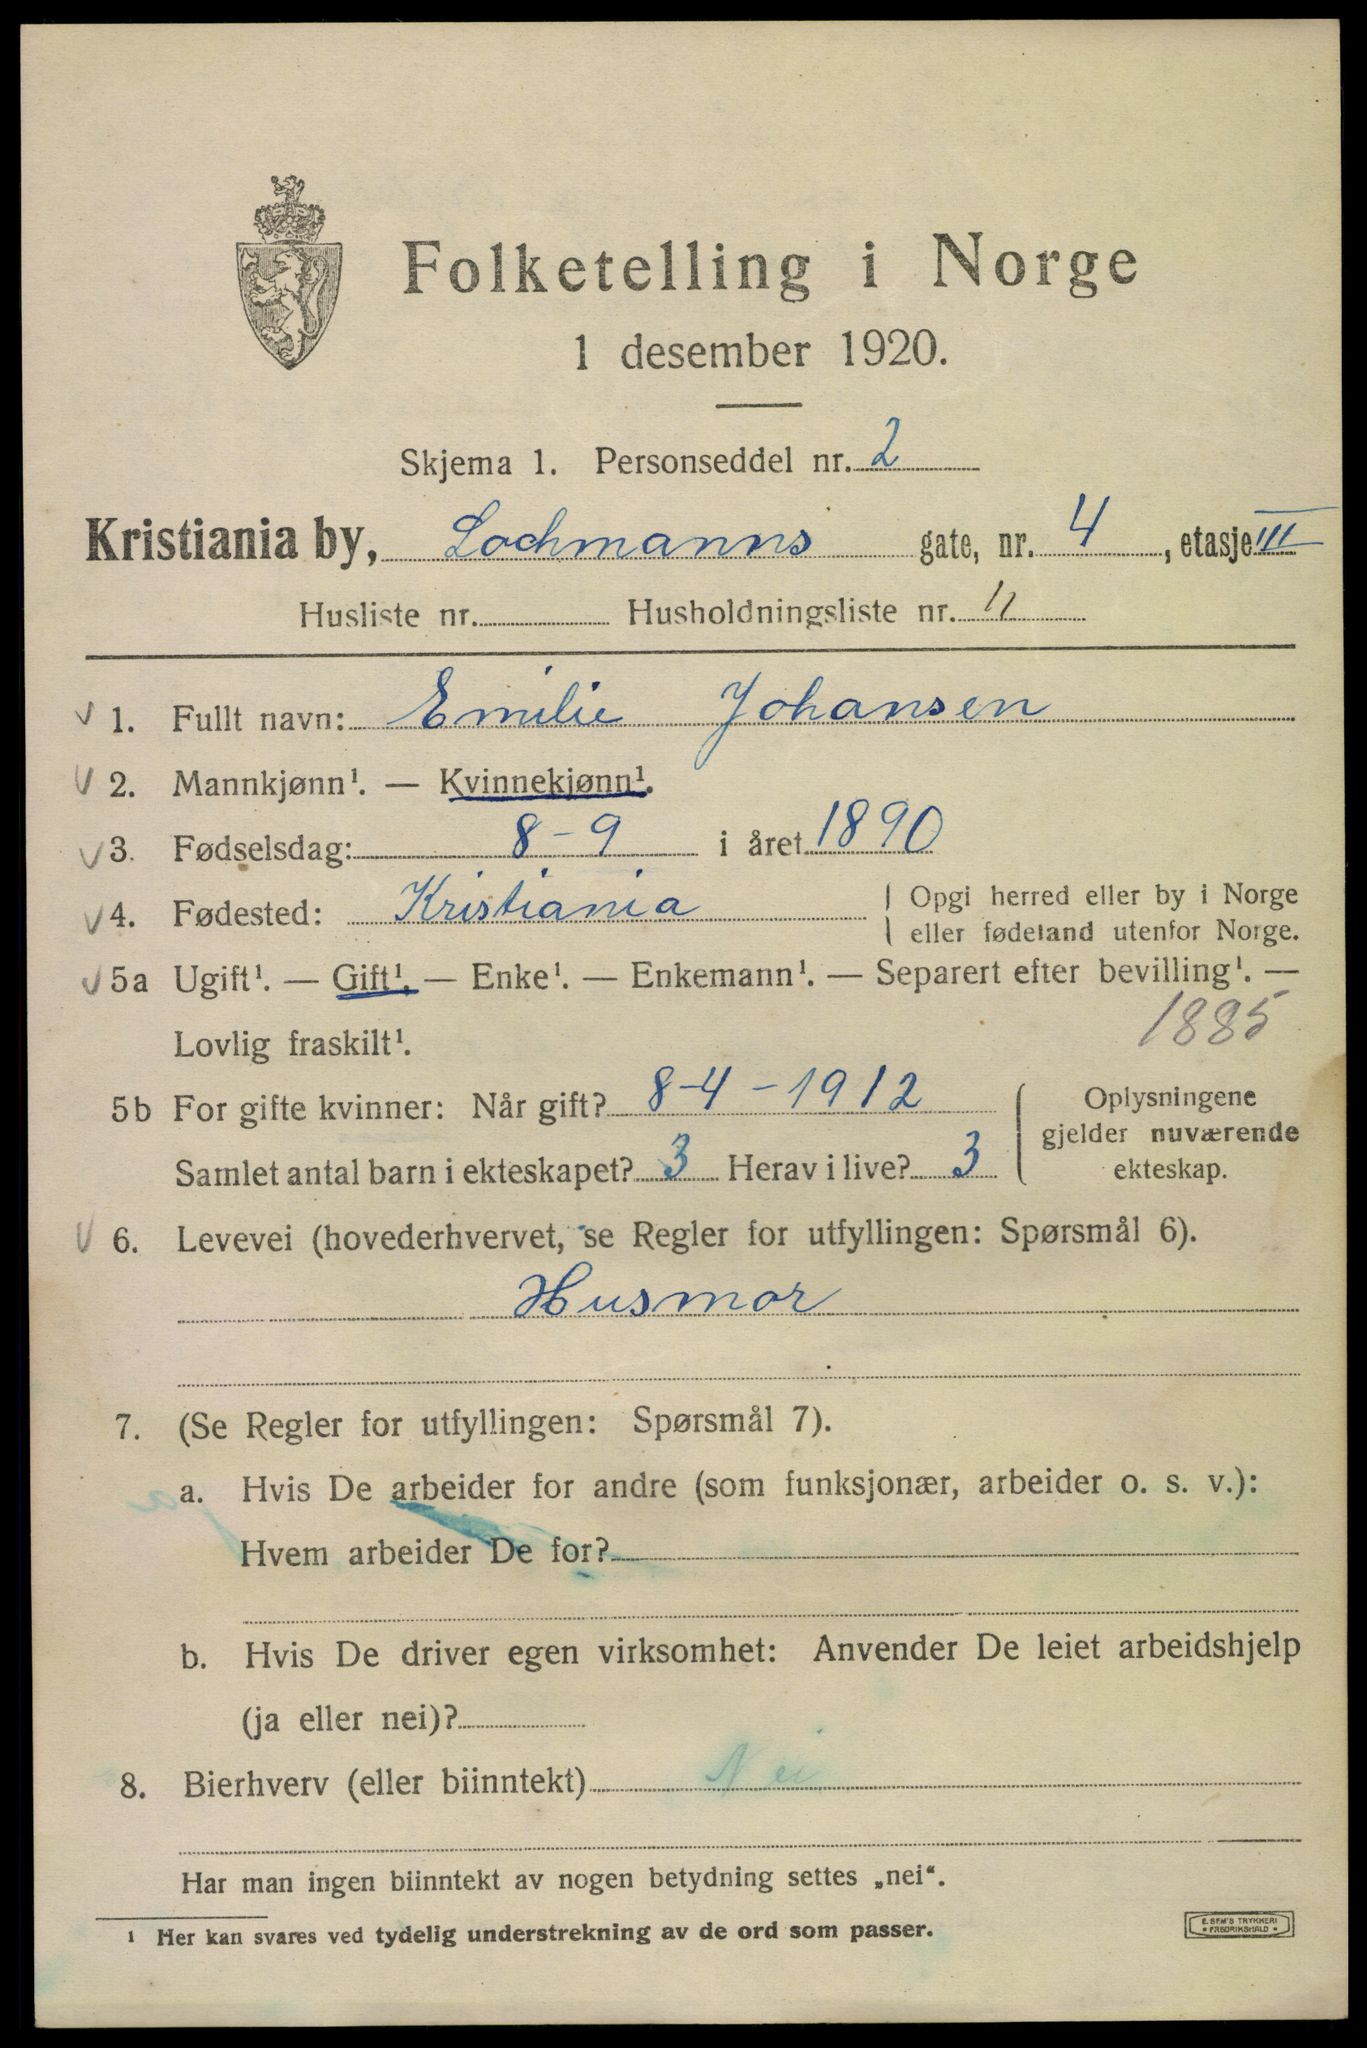 Folketelling i Norge
1 desember 1920.
Skjema 1. Personseddel nr. 2
Kristiania by, Lochmanns gate, nr. 4, etasje III
Husliste nr. Husholdningsliste nr. 11
1. Fullt navn: Emilie Johansen
2. Mannkjønn¹. — Kvinnekjønn¹.
3. Fødselsdag: 8-9 i året 1890
4. Fødested: Kristiania Opgi herred eller by i Norge
eller fødeland utenfor Norge.
5a Ugift¹. — Gift¹. — Enke¹. — Enkemann¹. — Separert efter bevilling¹. —
Lovlig fraskilt¹. 1885
5b For gifte kvinner: Når gift? 8-4-1912 Oplysningene
gjelder nuværende
Samlet antal barn i ekteskapet? 3 Herav i live? 3 ekteskap.
6. Levevei (hovederhvervet, se Regler for utfyllingen: Spørsmål 6).
Husmor
7. (Se Regler for utfyllingen: Spørsmål 7).
a. Hvis De arbeider for andre (som funksjonær, arbeider o. s. v.):
Hvem arbeider De for?
b. Hvis De driver egen virksomhet: Anvender De leiet arbeidshjelp
(ja eller nei)?
8. Bierhverv (eller biinntekt) Nei
Har man ingen biinntekt av nogen betydning settes „nei“.
¹ Her kan svares ved tydelig understrekning av de ord som passer.
E. SEM'S TRYKKERI
FREDRIKSHALD